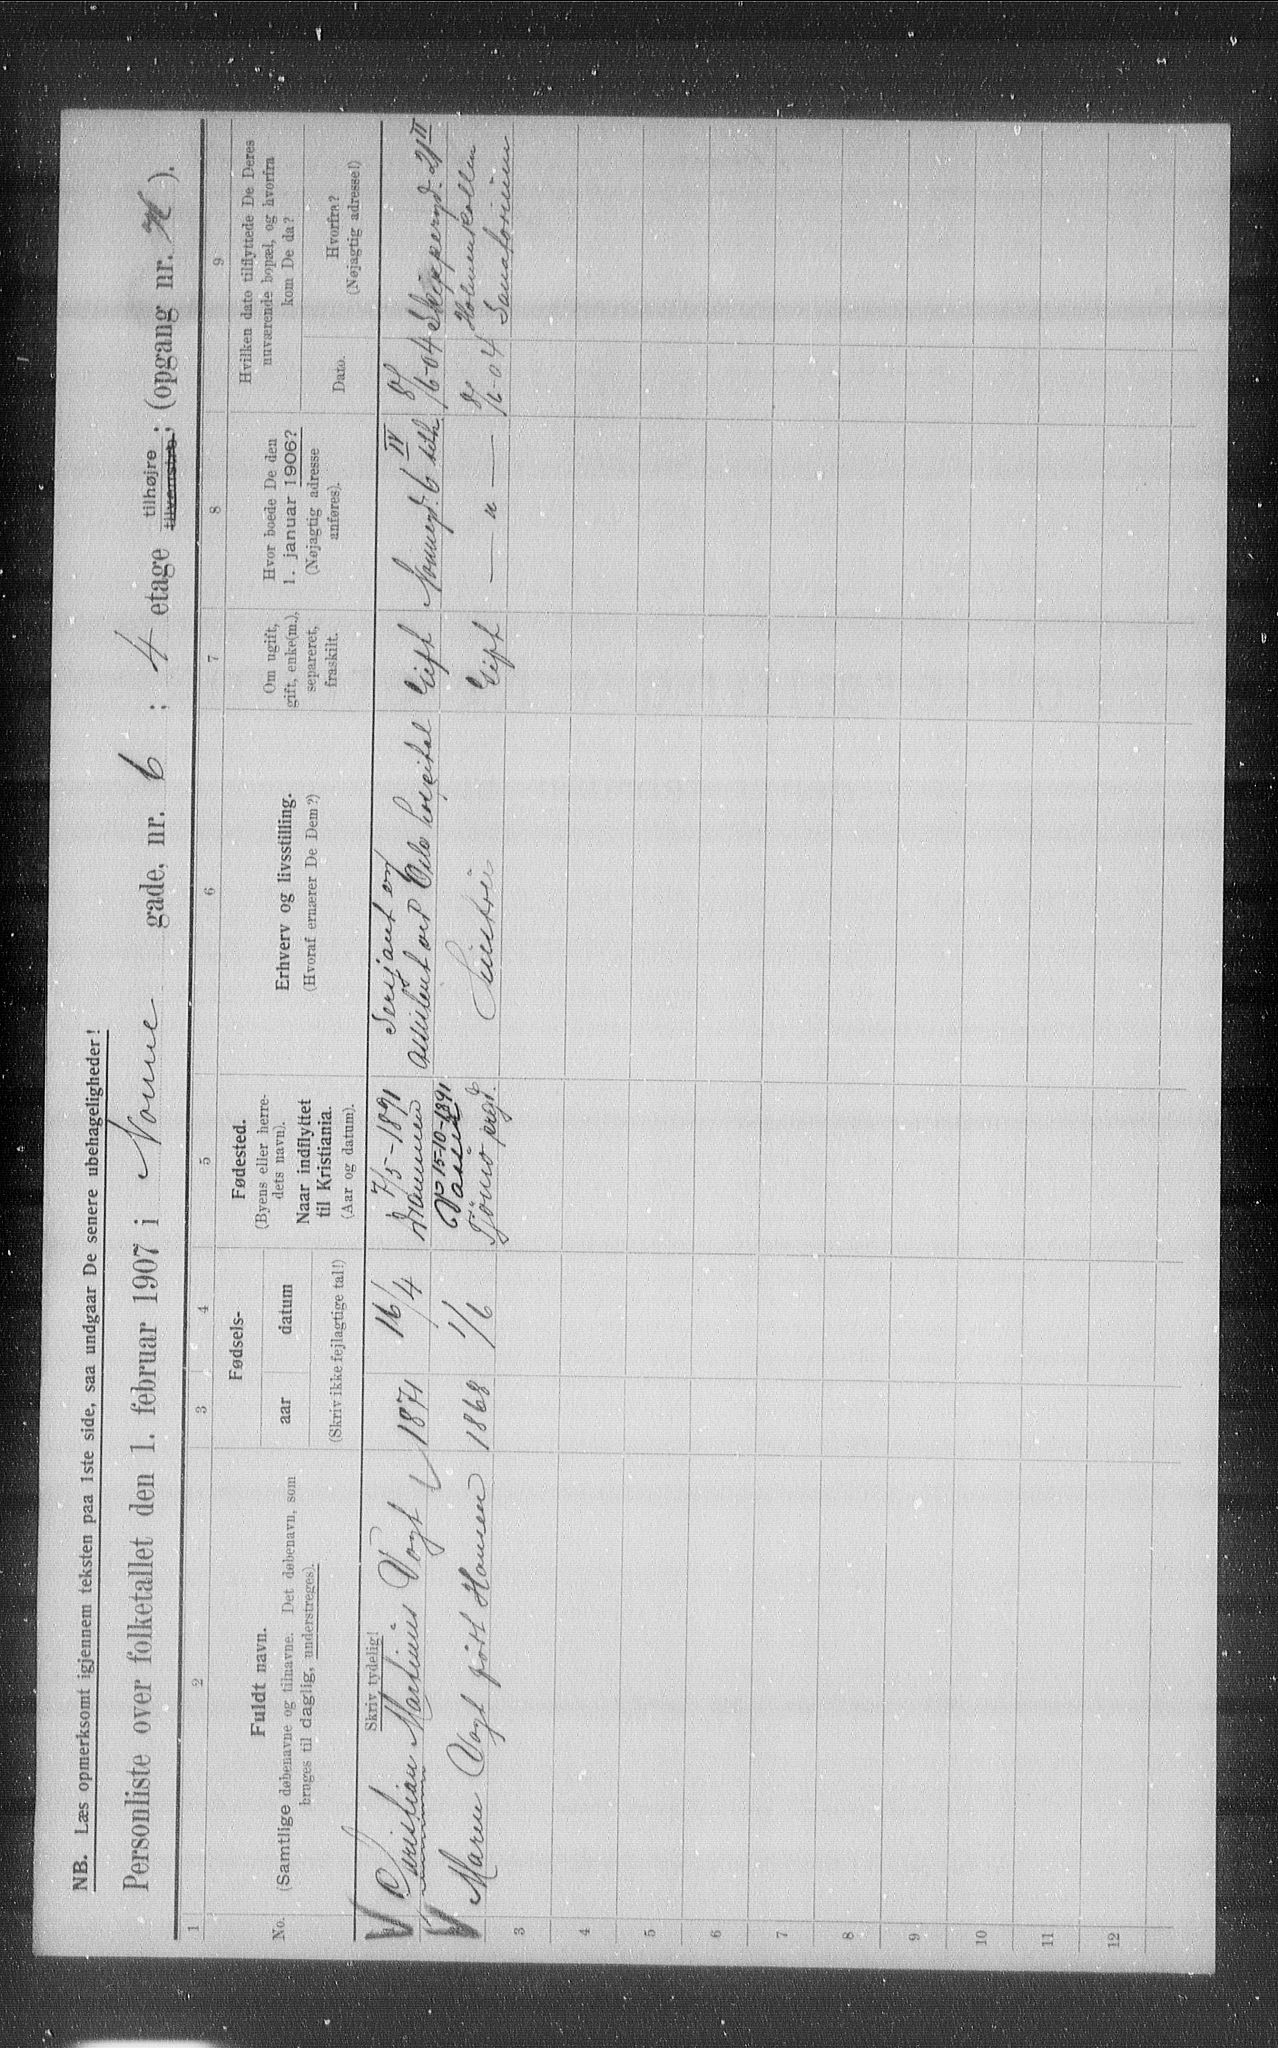 NB. Læs opmerksomt igjennem teksten paa 1ste side, saa undgaar De senere ubehageligheder!
Personliste over folketallet den 1. februar 1907 i Nonne gade, nr. 6 ; 4 etage tilhøjre tilvenstre; (opgang nr. ).
1 2 3 4 5 6 7 8 9
No.
Fuldt navn.
(Samtlige døbenavne og tilnavne. Det døbenavn, som
bruges til daglig, understreges).
Skriv tydelig!
Fødsels-
aar datum
(Skriv ikke fejlagtige tal!)
Fødested.
(Byens eller herre-
dets navn).
Naar indflyttet
til Kristiania.
(Aar og datum).
Erhverv og livsstilling.
(Hvoraf ernærer De Dem?)
Om ugift,
gift, enke(m.),
separeret,
fraskilt.
Hvor boede De den
1. januar 1906?
(Nøjagtig adresse
anføres).
Hvilken dato tilflyttede De Deres
nuværende bopæl, og hvorfra
kom De da?
Dato.
Hvorfra?
(Nøjagtig adresse!)
1 Christian Martinius Vogt 1871 16/4 7/5-1891 Drammen Serjant og assistent ved Oslo hospital Gift Nonnegd. 6 IV tilh. 8/6-04 Skipperugd. 21 II
2 Maren Vogt født Hansen 1868 1/6 15-10-1891 Tjømø prgd. Hustru Gift — " — 8/6-04 Holmenkollen Sanatorium
3
4
5
6
7
8
9
10
11
12